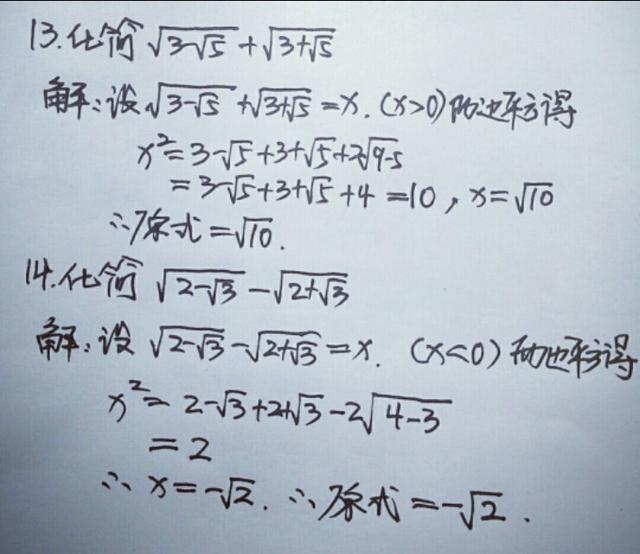 13.化简 √(3-√5) + √(3+√5)
解:设√(3-√5) + √(3+√5) = x. (x>0) 两边平方得
x² = 3-√5+3+√5+2√(9-5)
= 3-√5+3+√5+4 =10, x=√10
∴原式=√10.
14.化简 √(2-√3) - √(2+√3)
解:设 √(2-√3) - √(2+√3) = x. (x<0) 两边平方得
x² = 2-√3+2+√3-2√(4-3)
= 2
∴ x=-√2. ∴原式=-√2.